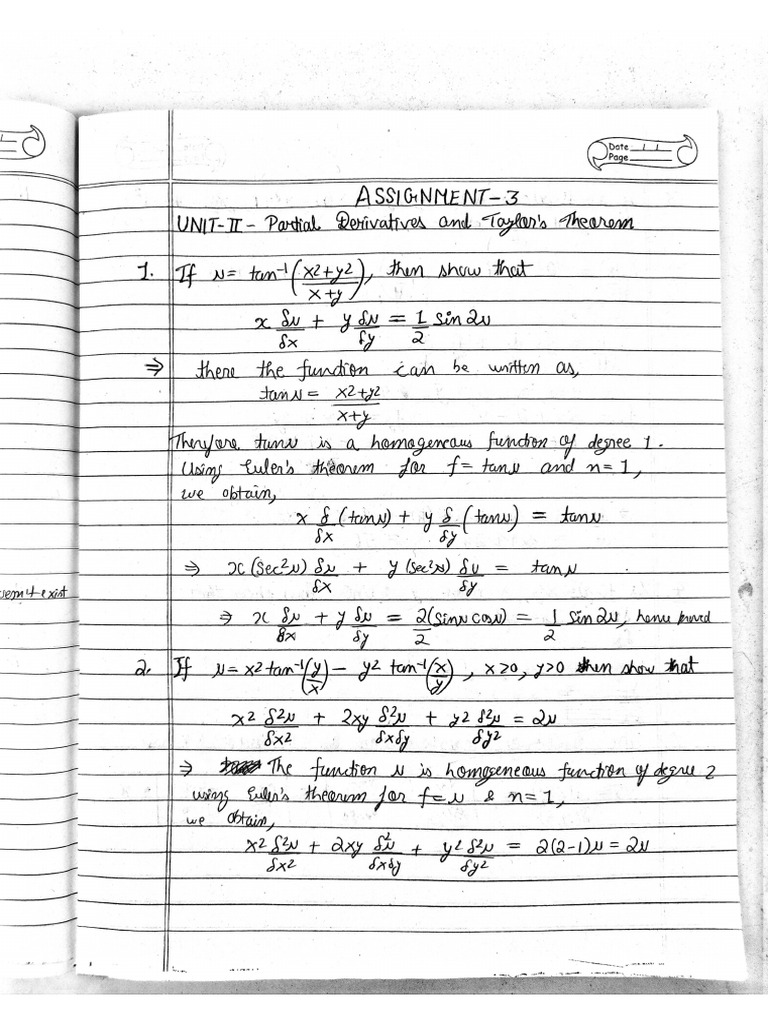 Date
Page
ASSIGNMENT-3
UNIT-II - Partial Derivatives and Taylor's Theorem
1. If u = tan⁻¹((x2+y2)/(x+y)), then show that
x δu/δx + y δu/δy = 1/2 sin 2u
⇒ there the function can be written as,
tan u = (x2+y2)/(x+y)
Therefore tanu is a homogeneous function of degree 1.
Using Euler's theorem for f = tanu and n=1,
we obtain,
x δ/δx (tanu) + y δ/δy (tanu) = tanu
⇒ x(Sec²u) δu/δx + y(Sec²u) δu/δy = tanu
⇒ x δu/δx + y δu/δy = 2/2 (sinu cosu) = 1/2 sin 2u, hence proved
2. If u = x2 tan⁻¹(y/x) - y2 tan⁻¹(x/y), x>0, y>0 then show that
x2 δ2u/δx2 + 2xy δ2u/δxδy + y2 δ2u/δy2 = 2u
⇒ The function u is homogeneous function of degree 2
using Euler's theorem for f=u & n=1,
we obtain,
x2 δ2u/δx2 + 2xy δ2u/δxδy + y2 δ2u/δy2 = 2(2-1)u = 2u
exist